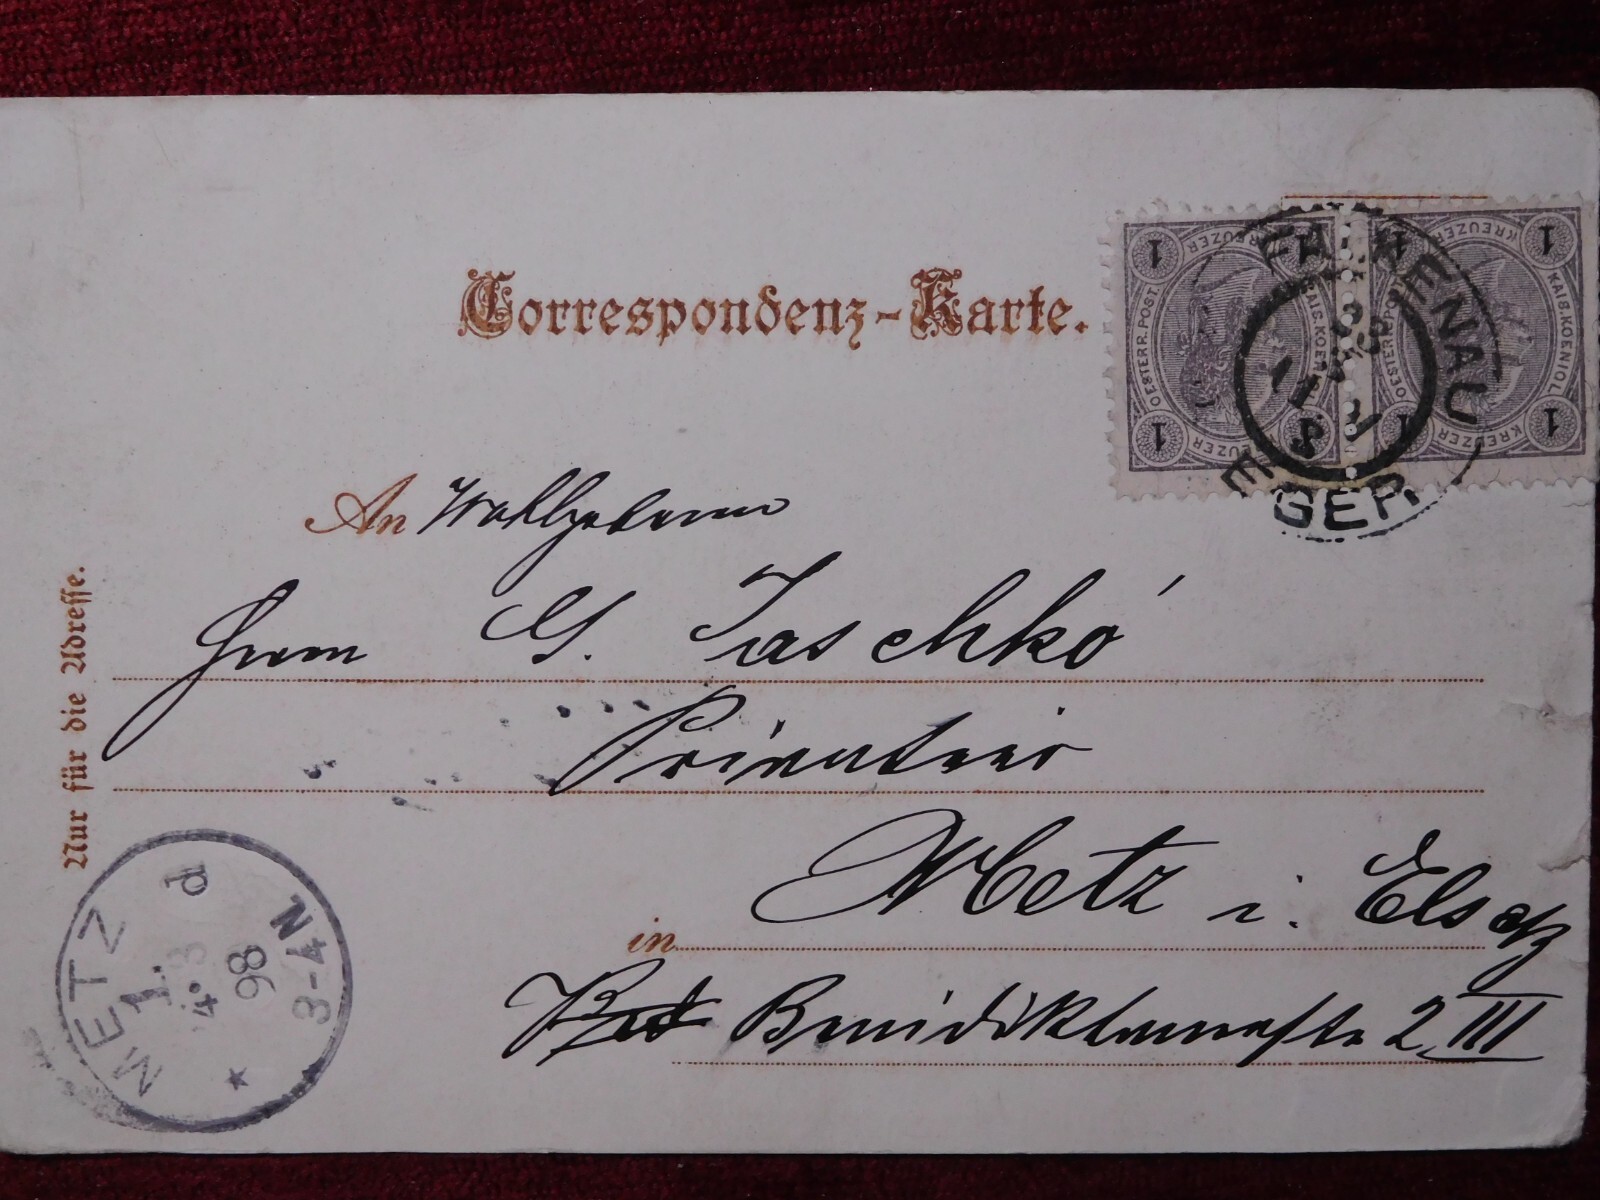 Correspondenz-Karte.
1 KREUZER 1
OESTERR. POST
KAIS. KOENIGL.
1 KREUZER 1
1 KREUZER 1
OESTERR. POST
KAIS. KOENIGL.
1 KREUZER 1
FALKENAU
EGER
An Wohlgeboren
Herrn G. Jaschkó
Privatier
in Metz i. Elsaß
2 III
Nur für die Adresse.
METZ
1.
d
98
3-4N